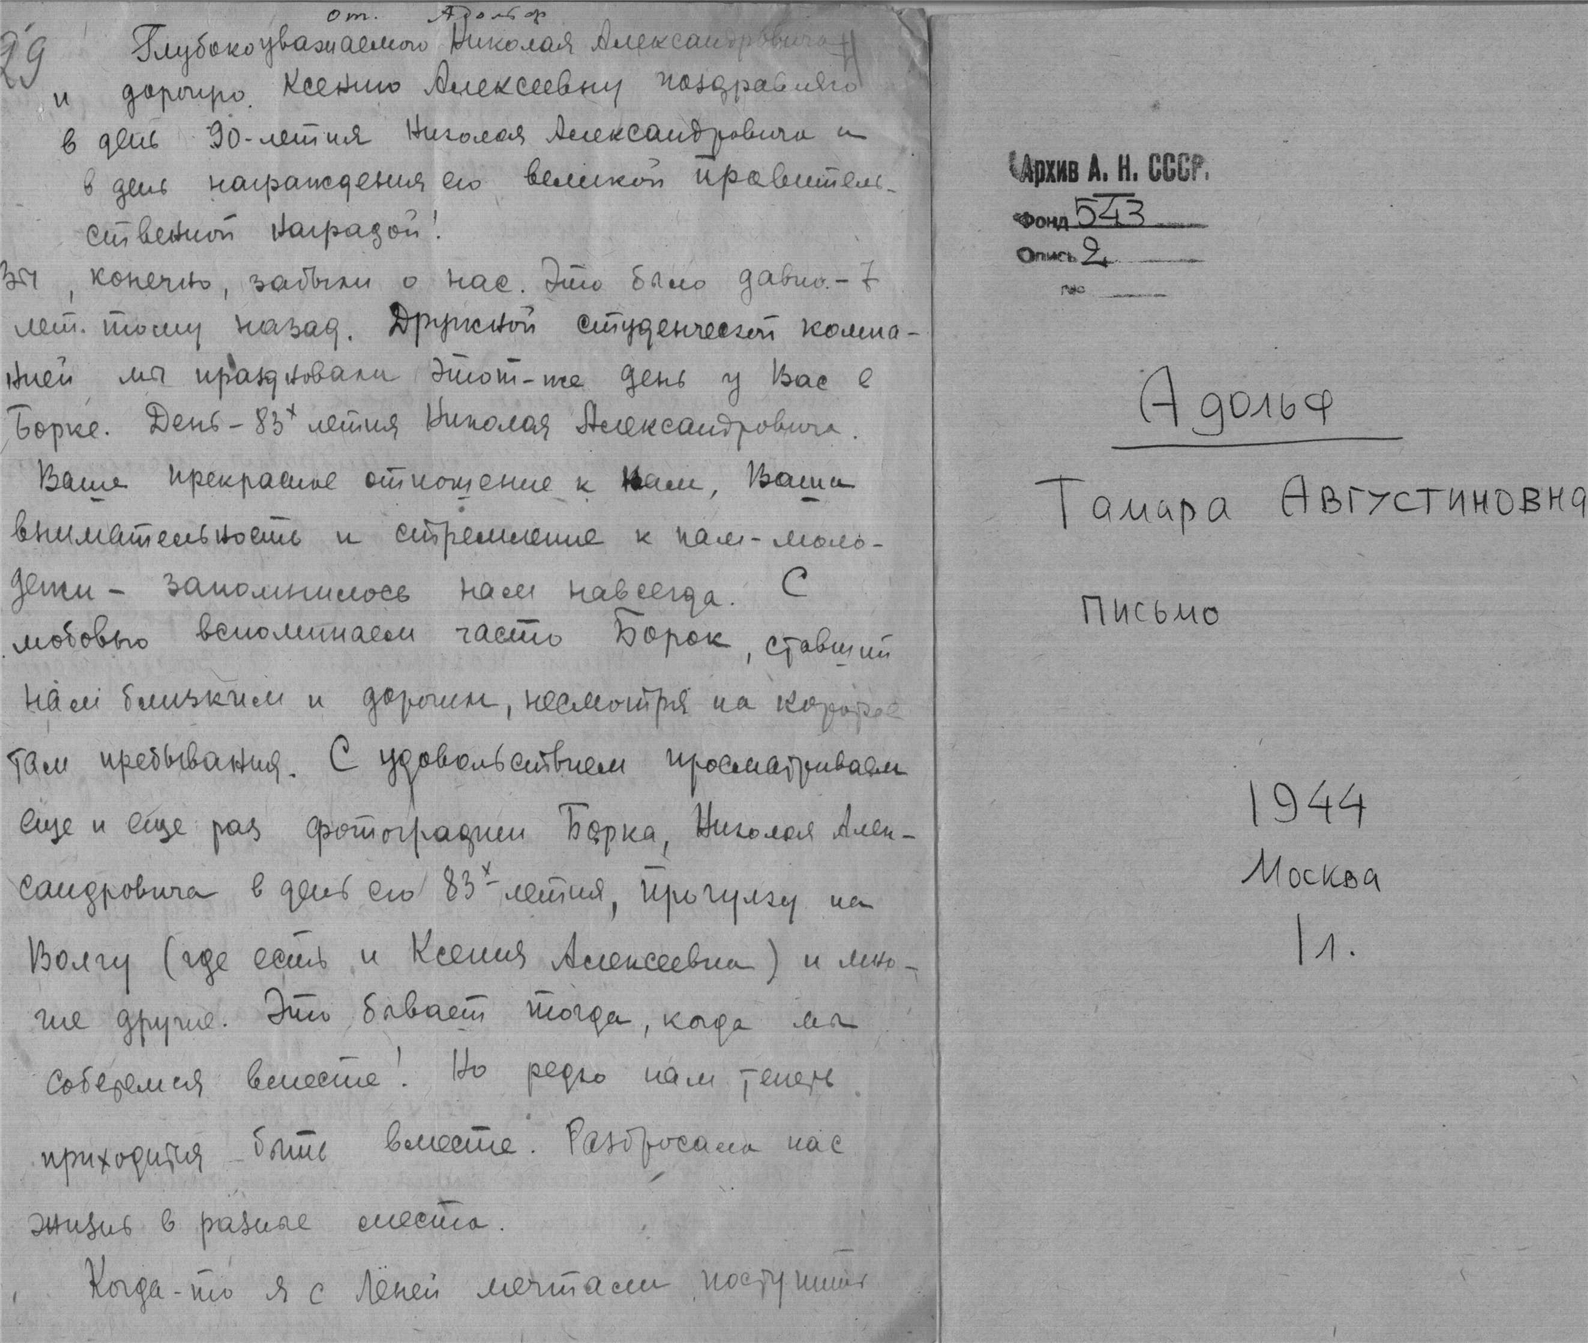 от. Адольф
29
Глубокоуважаемого Николая Александровича
и дорогую Ксению Алексеевну поздравляю
в день 90-летия Николая Александровича и
в день награждения его великой правитель-
ственной наградой!
Вы, конечно, забыли о нас. Это было давно - 7
лет тому назад. Дружной студенческой компа-
нией мы праздновали этот-же день у Вас в
Борке. День - 83х летия Николая Александровича.
Ваше прекрасное отношение к нам, Ваши
внимательность и стремление к нам - моло-
дежи - запомнилось нам навсегда. С
любовью вспоминаем часто Борок, ставший
нам близким и дорогим, несмотря на
там пребывания. С удовольствием просматриваем
еще и еще раз фотографии Борка, Николая Алек-
сандровича в день его 83х-летия, прогулку на
Волгу (где есть и Ксения Алексеевна) и мно-
гие другие. Это бывает тогда, когда мы
соберемся вместе! Но редко нам теперь
приходится быть вместе. Разбросала нас
жизнь в разные места.
Когда-то я с Лёней мечтали поступить
Архив А. Н. СССР.
Фонд 543
Опись 2
Адольф
Тамара Августиновна
Письмо
1944
Москва
1 л.